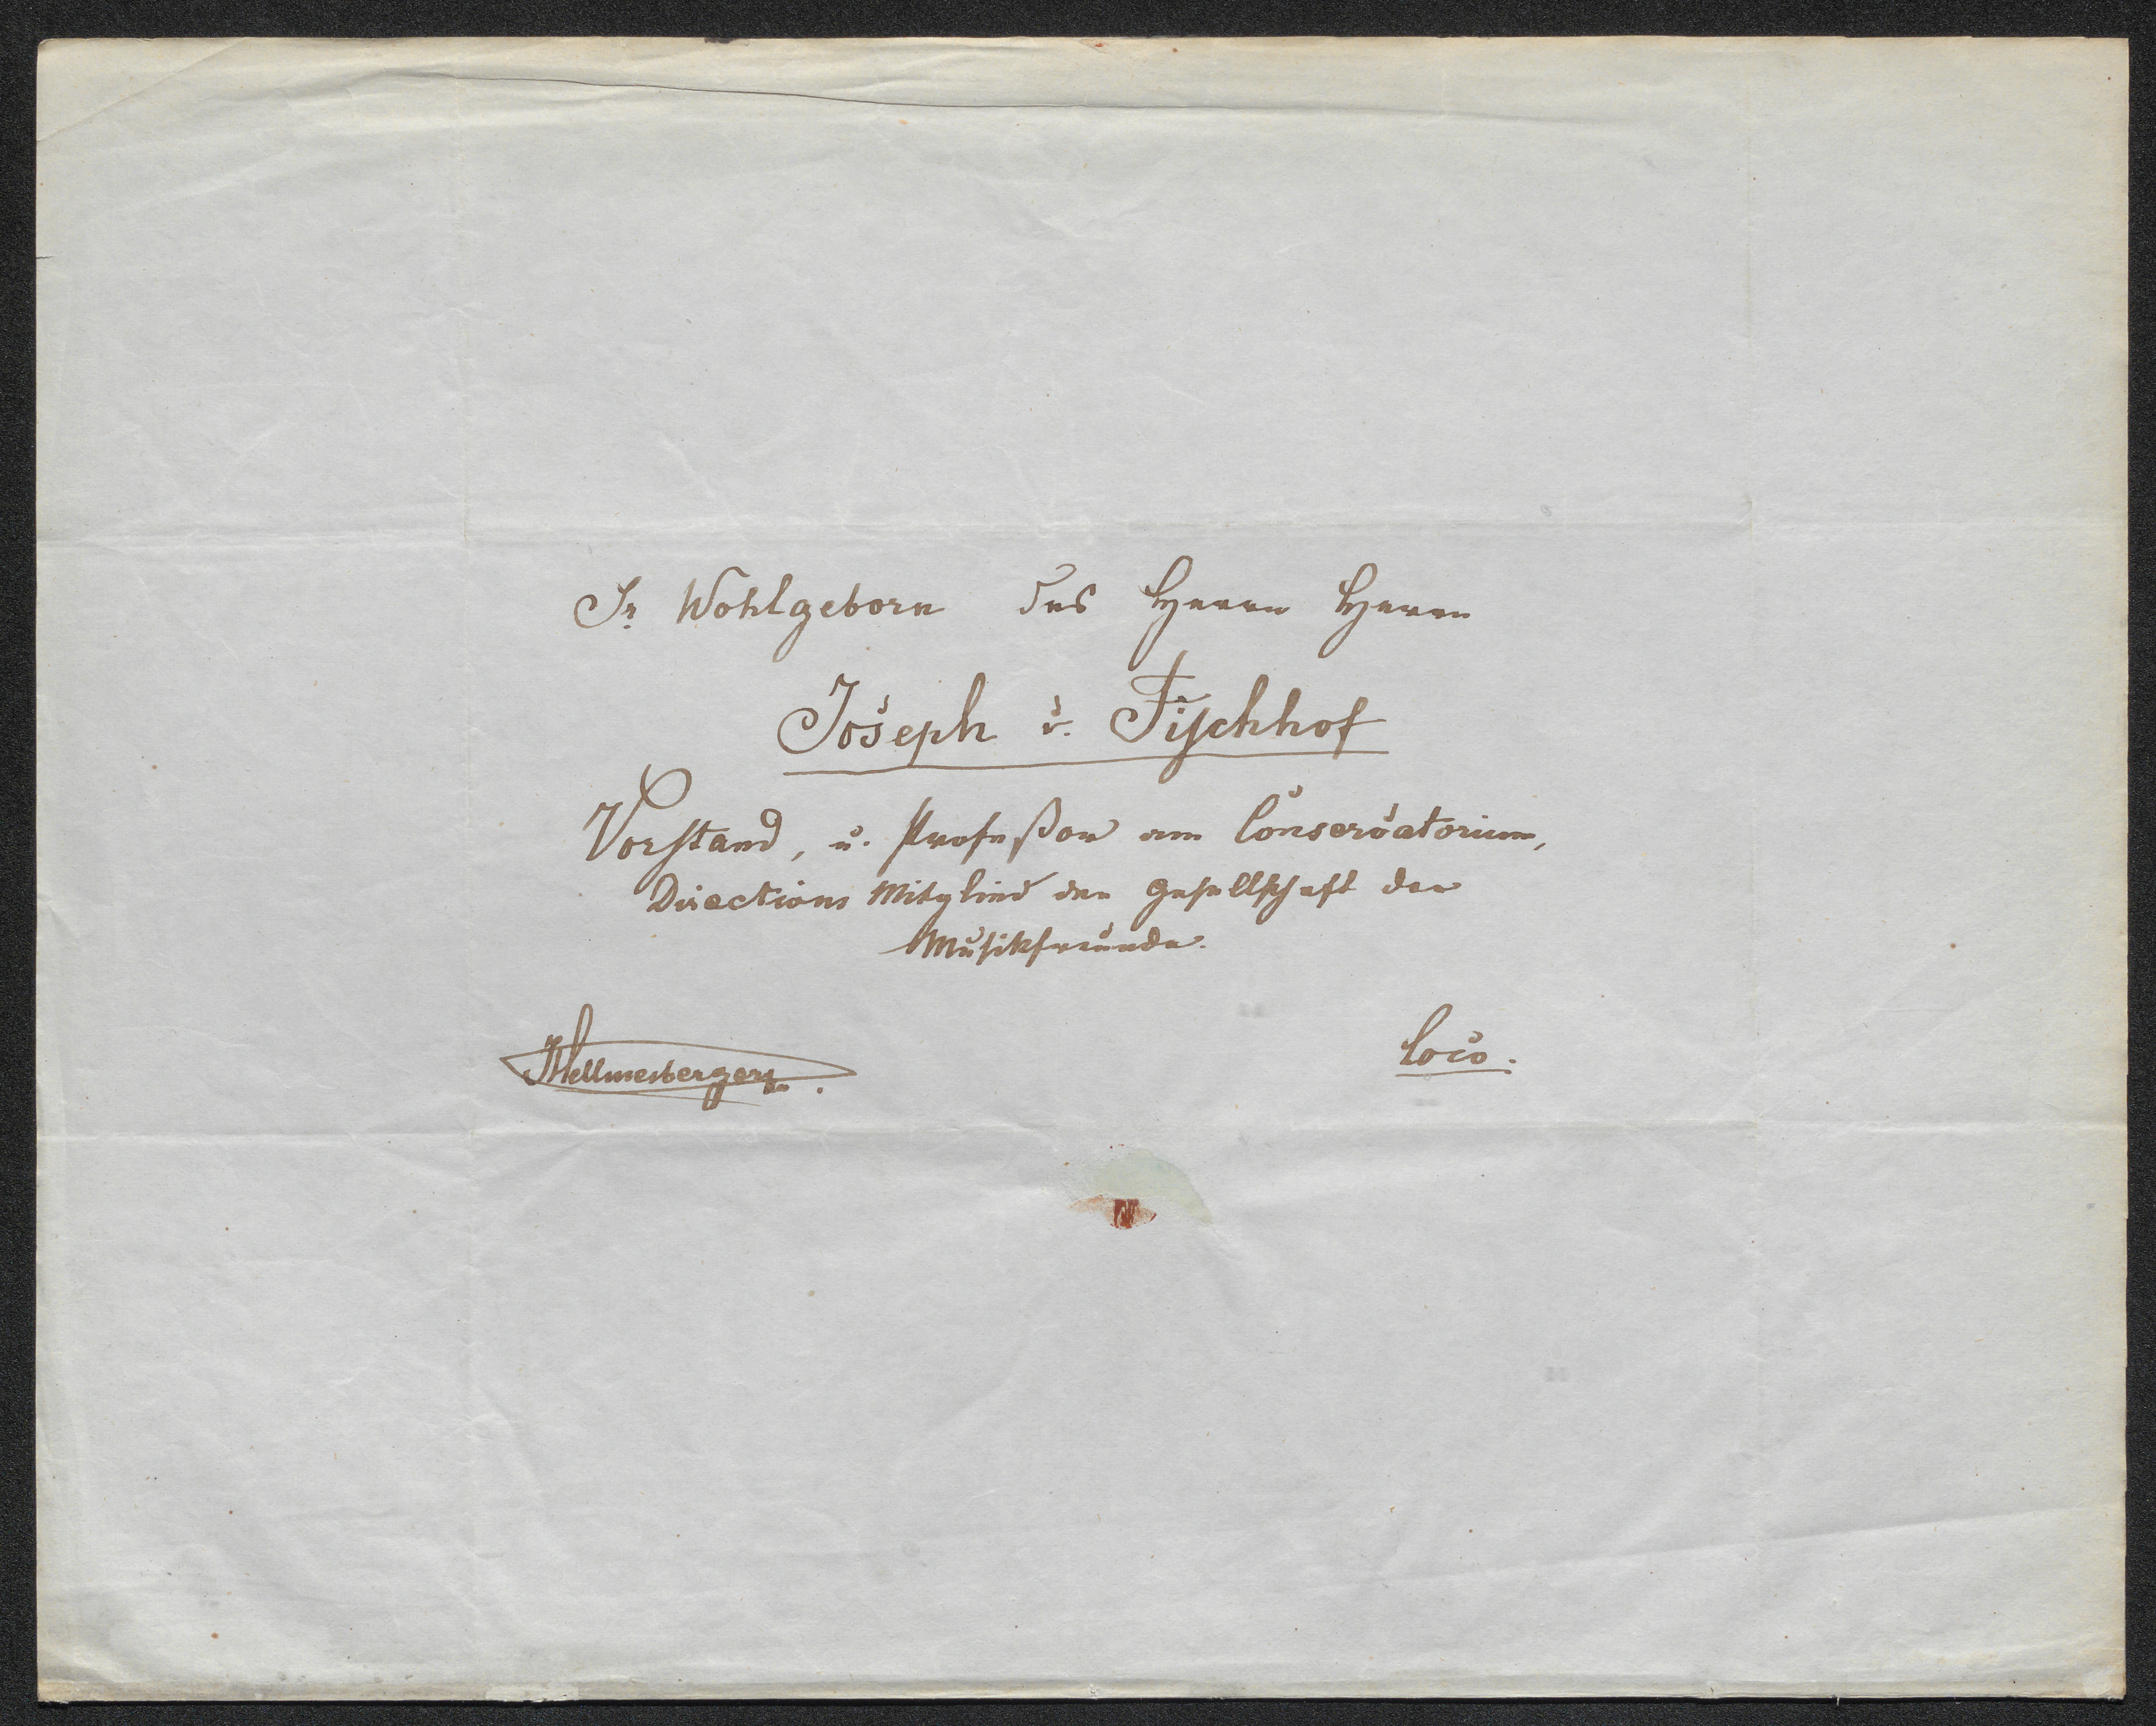 Sr Wohlgeborn des Herrn Herrn
Joseph v. Fischhof
Vorstand, u. Profeßor am Conservatorium,
Directions Mitglied der Gesellschaft der
Musikfreunde.
JHellmesberger
Loco.